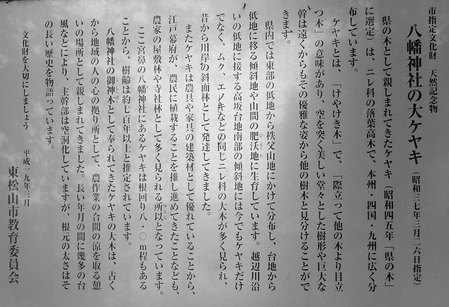 市指定文化財　天然記念物
八幡神社の大ケヤキ（昭和三七年三月二六日指定）
県の木として親しまれてきたケヤキ（昭和四五年「県の木」
に選定）は、ニレ科の落葉高木で、本州・四国・九州に広く分
布しています。
ケヤキとは、「けやけき木」で、「際立って他の木より目立
つ木」の意味があり、空を突く美しい堂々とした樹形や巨大な
幹は遠くからもその優雅な姿から他の樹木と見分けることがで
きます。
県内では東部の低地から秩父山地にかけて分布し、台地から
低地に移る傾斜地や山間の肥沃地に生育しています。越辺川沿
いの低地に接する高坂台地南部の傾斜地には今でもケヤキだけ
でなく、ムク、エノキなどの同じニレ科の大木が多く見られ、
昔から川岸の斜面林として発達してきました。
またケヤキは農具や家具の建築材として優れていることから、
江戸幕府が、農民に植栽することを推し進めてきたことなども、
農家の屋敷林や寺社林として多く見られる所以となっています。
ここ宮鼻の八幡神社にあるケヤキは根回り八・〇m程もある
ことから、樹齢は約七百年以上と推定されています。
八幡神社の御神木として奉られてきたケヤキの大木は、古く
から地域の人の心の拠り所として、農作業の合間の涼を取る憩
いの場所として親しまれてきました。長い年月の間に幾多の台
風などにより、主幹部は空洞化していますが、根元の太さはそ
の長い歴史を物語っています。
文化財を大切にしましょう
平成一九年三月
東松山市教育委員会